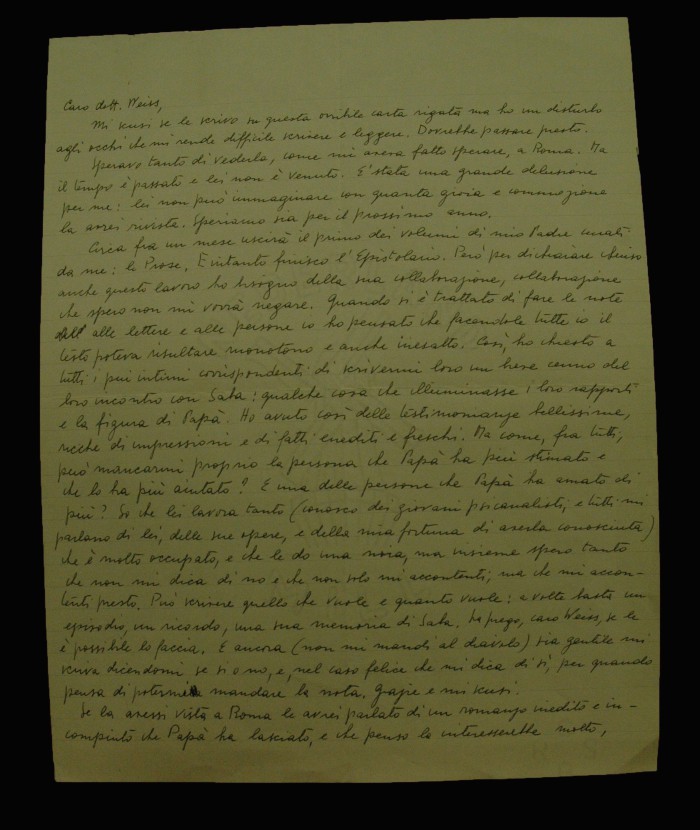 Caro dott. Weiss,
Mi scusi se le scrivo su questa orribile carta rigata ma ho un disturbo
agli occhi che mi rende difficile scrivere e leggere. Dovrebbe passare presto.
Speravo tanto di vederla, come mi aveva fatto sperare, a Roma. Ma
il tempo è passato e lei non è venuto. E' stata una grande delusione
per me: lei non può immaginare con quanta gioia e commozione
la avrei rivista. Speriamo sia per il prossimo anno.
Circa fra un mese uscirà il primo dei volumi di mio Padre curati
da me: le Prose. E intanto finisco l'Epistolario. Però per dichiarare chiuso
anche questo lavoro ho bisogno della sua collaborazione, collaborazione
che spero non mi vorrà negare. Quando si è trattato di fare le note
alle lettere e alle persone io ho pensato che facendole tutte io il
testo poteva risultare monotono e anche inesatto. Così, ho chiesto a
tutti i più intimi corrispondenti di scrivermi loro un breve cenno del
loro incontro con Saba: qualche cosa che illuminasse i loro rapporti
e la figura di Papà. Ho avuto così delle testimonianze bellissime,
ricche di impressioni e di fatti inediti e freschi. Ma come, fra tutti,
può mancarmi proprio la persona che Papà ha più stimato e
che lo ha più aiutato? E una delle persone che Papà ha amato di
più? So che lei lavora tanto (conosco dei giovani psicanalisti, e tutti mi
parlano di lei, delle sue opere, e della mia fortuna di averla conosciuta)
che è molto occupato, e che le do una noia, ma insieme spero tanto
che non mi dica di no e che non solo mi accontenti; ma che mi accon-
tenti presto. Può scrivere quello che vuole e quanto vuole: a volte basta un
episodio, un ricordo, una sua memoria di Saba. La prego, caro Weiss, se le
è possibile lo faccia. E ancora (non mi mandi al diavolo) sia gentile mi
scriva dicendomi se sì o no, e, nel caso felice che mi dica di sì, per quando
pensa di potermela mandare la nota. Grazie e mi scusi.
Se la avessi vista a Roma le avrei parlato di un romanzo inedito e in-
compiuto che Papà ha lasciato, e che penso la interesserebbe molto,